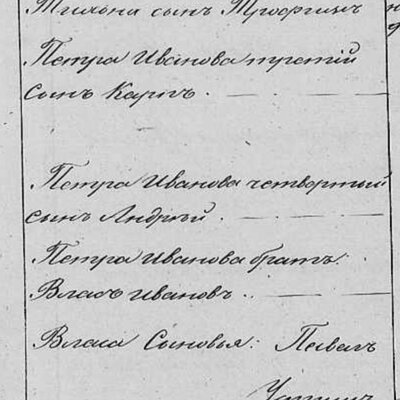 сынъ Трофимъ
Петра Иванова третій
сынъ Карпъ.
Петра Иванова четвертый
сынъ Андрѣй.
Петра Иванова братъ:
Власъ Ивановъ..
Власа Сыновья: Павелъ